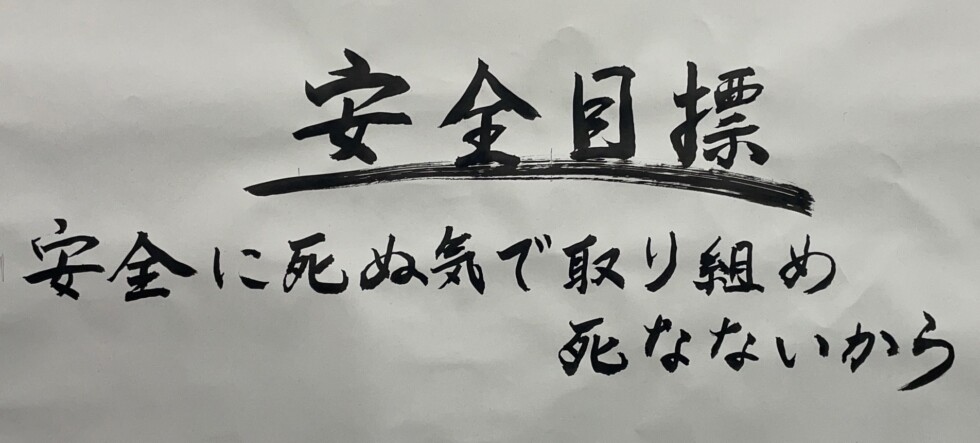 安全目標
安全に死ぬ気で取り組め
死なないから